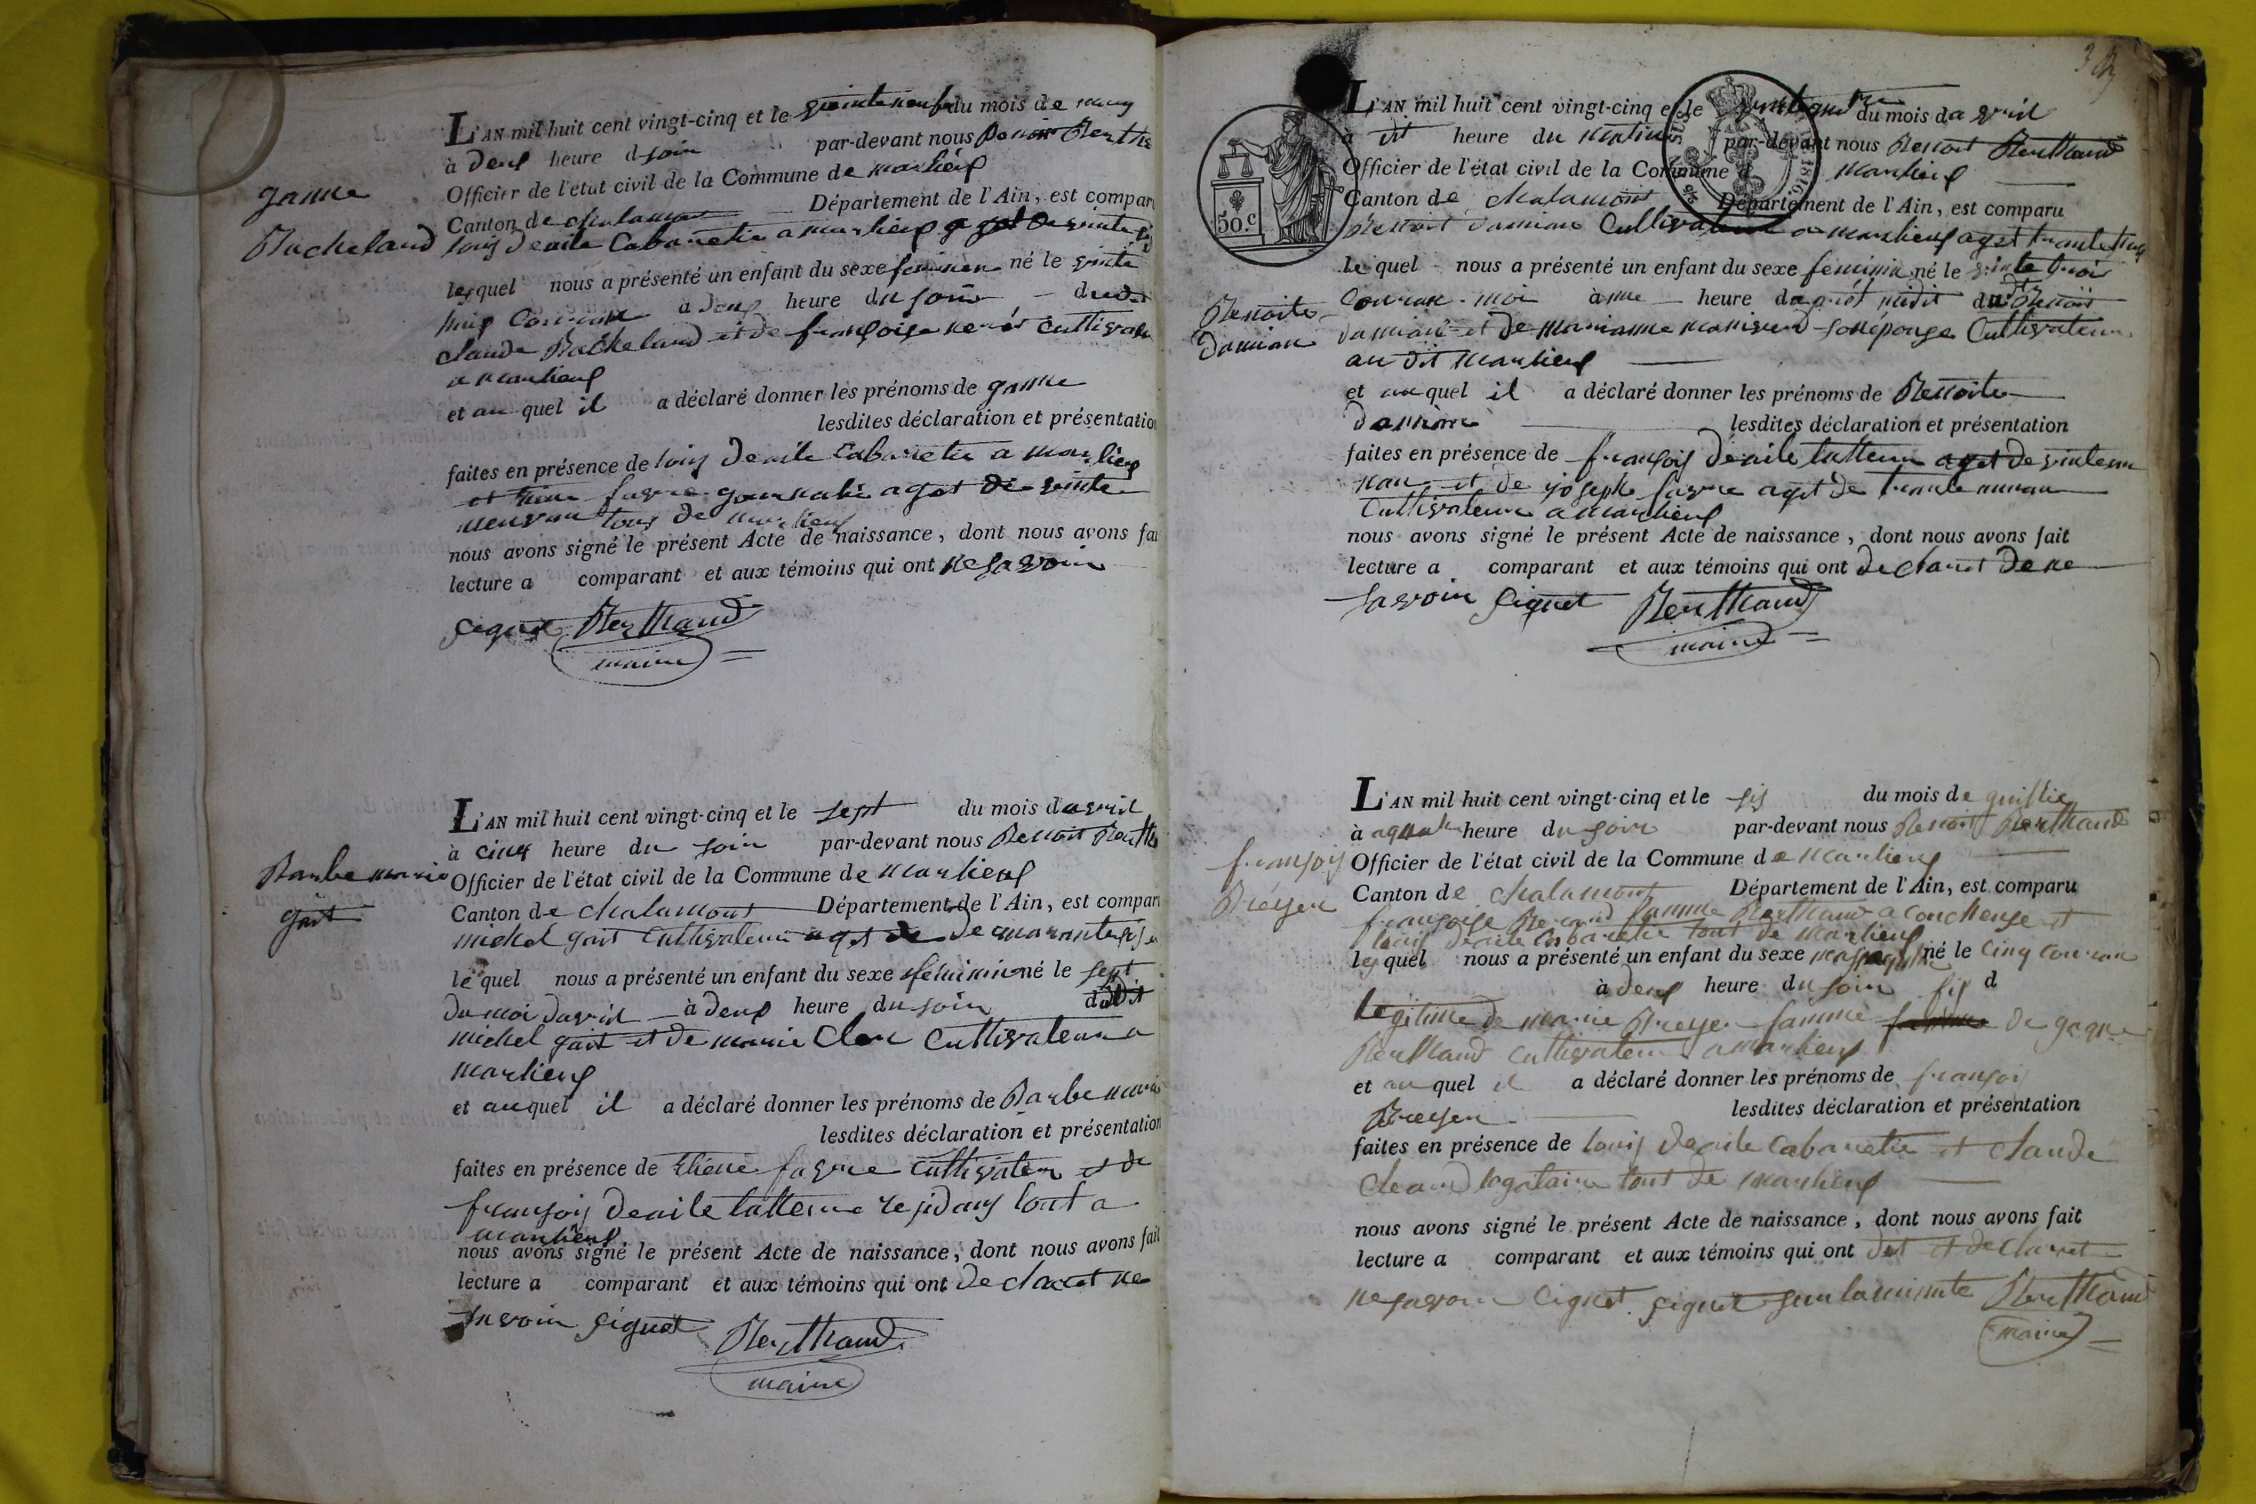 L'AN mil huit cent vingt-cinq et le vointe neuf du mois de mars
à deux heure d soir par-devant nous Benoit Berth
Officier de l'état civil de la Commune de marlieux
Canton de chalamont Département de l'Ain, est compar
janne
Bacheland
louis deaile Cabaretie a marlieux aget de vinte
lequel nous a présenté un enfant du sexe feminen né le vinte
huis Couran à deux heure du soir du dit
claude Bachelard et de françoise cultivateur
a marlieux
et au quel il a déclaré donner les prénoms de janne
lesdites déclaration et présentation
faites en présence de louis deaile Cabaretie a marlieux
et favre journalie aget de vinte
neuvan tous de marlieux
nous avons signé le présent Acte de naissance, dont nous avons fai
lecture a comparant et aux témoins qui ont ne savoir
signet Berthaud
maire
L'AN mil huit cent vingt-cinq et le sept du mois davril
à cinq heure du soir par-devant nous Benoit Berth
Barbe marie
gait
Officier de l'état civil de la Commune de marlieux
Canton de chalamont Département de l'Ain, est compar
michel gait cultivateur aget de de quarante
lequel nous a présenté un enfant du sexe féminin né le sept
du moi davril à deux heure du soir dudit
michel gait et de marie Clerc Cultivateur a
marlieux
et auquel il a déclaré donner les prénoms de Barbe marie
lesdites déclaration et présentation
faites en présence de favre cultivateur et de
françois deaile tatteur residans tout a
marlieux
nous avons signé le présent Acte de naissance, dont nous avons fait
lecture a comparant et aux témoins qui ont de claret ne
savoir signet Berthaud
maire
L'AN mil huit cent vingt-cinq et le vintequatre du mois davril
à dit heure du matin par-devant nous Benoit Berthaud
Officier de l'état civil de la Commune d marlieux
Canton de chalamont Département de l'Ain, est comparu
50.c
1816
Benoit damian Cultivateur a marlieux aget trante
lequel nous a présenté un enfant du sexe féminin né le vinte trois
Benoite
damian
Couran moi à une heure daprét midit dudt Benoit
damian et de marianne son épouse Cultivateur
au dit marlieux
et au quel il a déclaré donner les prénoms de Benoite
damian lesdites déclaration et présentation
faites en présence de françois deaile tatteur aget de vinte un
nan et de joseph favre aget de trante
Cultivateur a marlieux
nous avons signé le présent Acte de naissance, dont nous avons fait
lecture a comparant et aux témoins qui ont declaret de ne
savoir signet Berthaud
maire
L'AN mil huit cent vingt-cinq et le sis du mois de
à heure du soir par-devant nous Benoit Berthaud
françois
Breyer
Officier de l'état civil de la Commune de marlieux
Canton de chalamont Département de l'Ain, est comparu
françoise famme Berthaud acoucheuse et
louis deaile cabaretie tout de marlieux
lesquel nous a présenté un enfant du sexe né le cinq couran
à deux heure du soir fis d
legitime de marie Breyer famme de
Berthaud cultivateur a marlieux
et au quel il a déclaré donner les prénoms de françoi
Breyer lesdites déclaration et présentation
faites en présence de louis deaile cabaretie et claude
tout de marlieux
nous avons signé le présent Acte de naissance, dont nous avons fait
lecture a comparant et aux témoins qui ont dit et declaret
ne savoir signet signet sur la minute Berthaud
maire